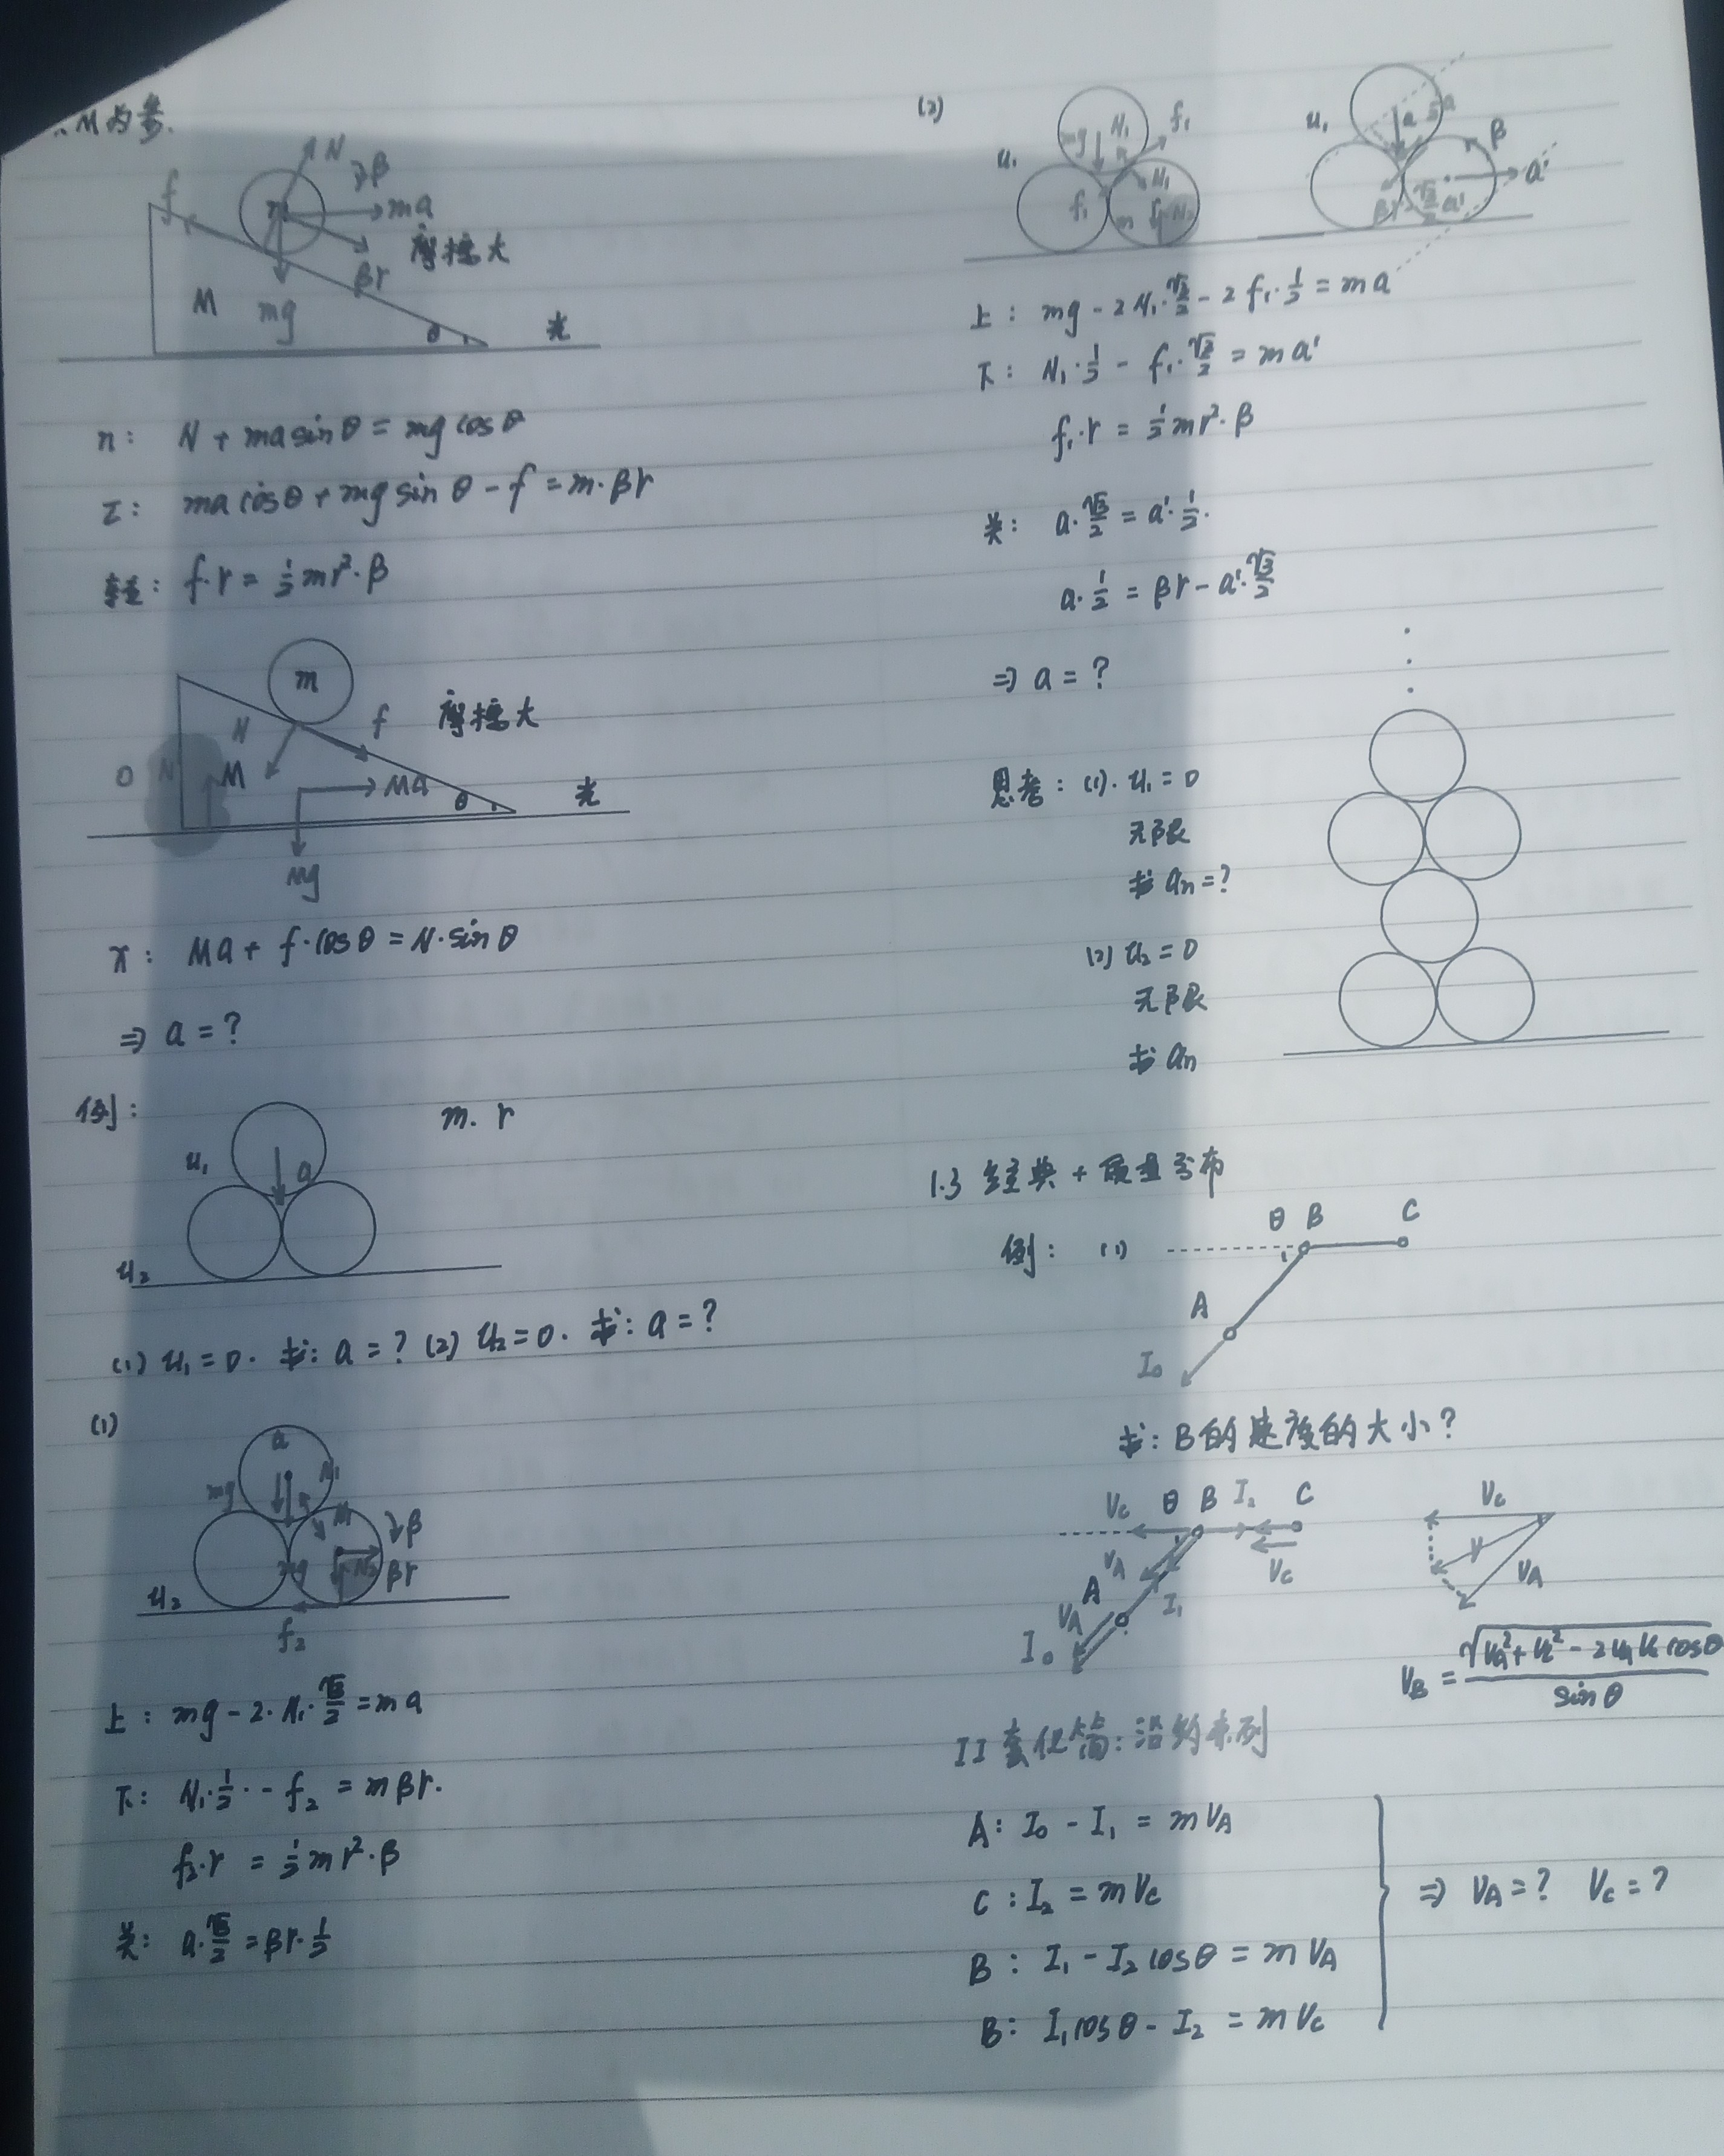 M为参.
N
β
f
m
ma
摩擦大
βr
M
mg
θ
光
n: N + ma sinθ = mg cosθ
τ: ma cosθ + mg sinθ - f = m·βr
转: f·r = ½mr²·β
m
N
f
摩擦大
M
Ma
θ
光
Mg
x: Ma + f·cosθ = N·sinθ
⇒ a = ?
例:
m. r
u₁
a
u₂
(1) u₁=0. 求: a=? (2) u₂=0. 求: a=?
(1)
a
mg
N₁
N₁
β
βr
u₂
f₂
上: mg - 2·N₁·√3/2 = ma
下: N₁·½ - f₂ = mβr.
f₂·r = ½mr²·β
关: a·√3/2 = βr·½
(2)
u₁
mg
N₁
f₁
N₁
f₁
m
u₁
a
β
a'
βr
√3/2 a'
上: mg - 2N₁·√3/2 - 2f₁·½ = ma
下: N₁·½ - f₁·√3/2 = ma'
f₁·r = ½mr²·β
关: a·√3/2 = a'·½.
a·½ = βr - a'·√3/2
⇒ a = ?
思考: (1). u₁=0
无限
求 aₙ=?
(2) u₂=0
无限
求 aₙ
1.3 经典 + 质量分布
例: (1)
θ B C
A
I₀
求: B的速度的大小?
Vc θ B I₂ C
VA
Vc
A
VA
I₁
I₀
Vc
V
VA
VB = √(VA² + Vc² - 2VAVc cosθ) / sinθ
II 套化简: 沿约束列
A: I₀ - I₁ = mVA
C: I₂ = mVc
B: I₁ - I₂cosθ = mVA
B: I₁cosθ - I₂ = mVc
⇒ VA=? Vc=?